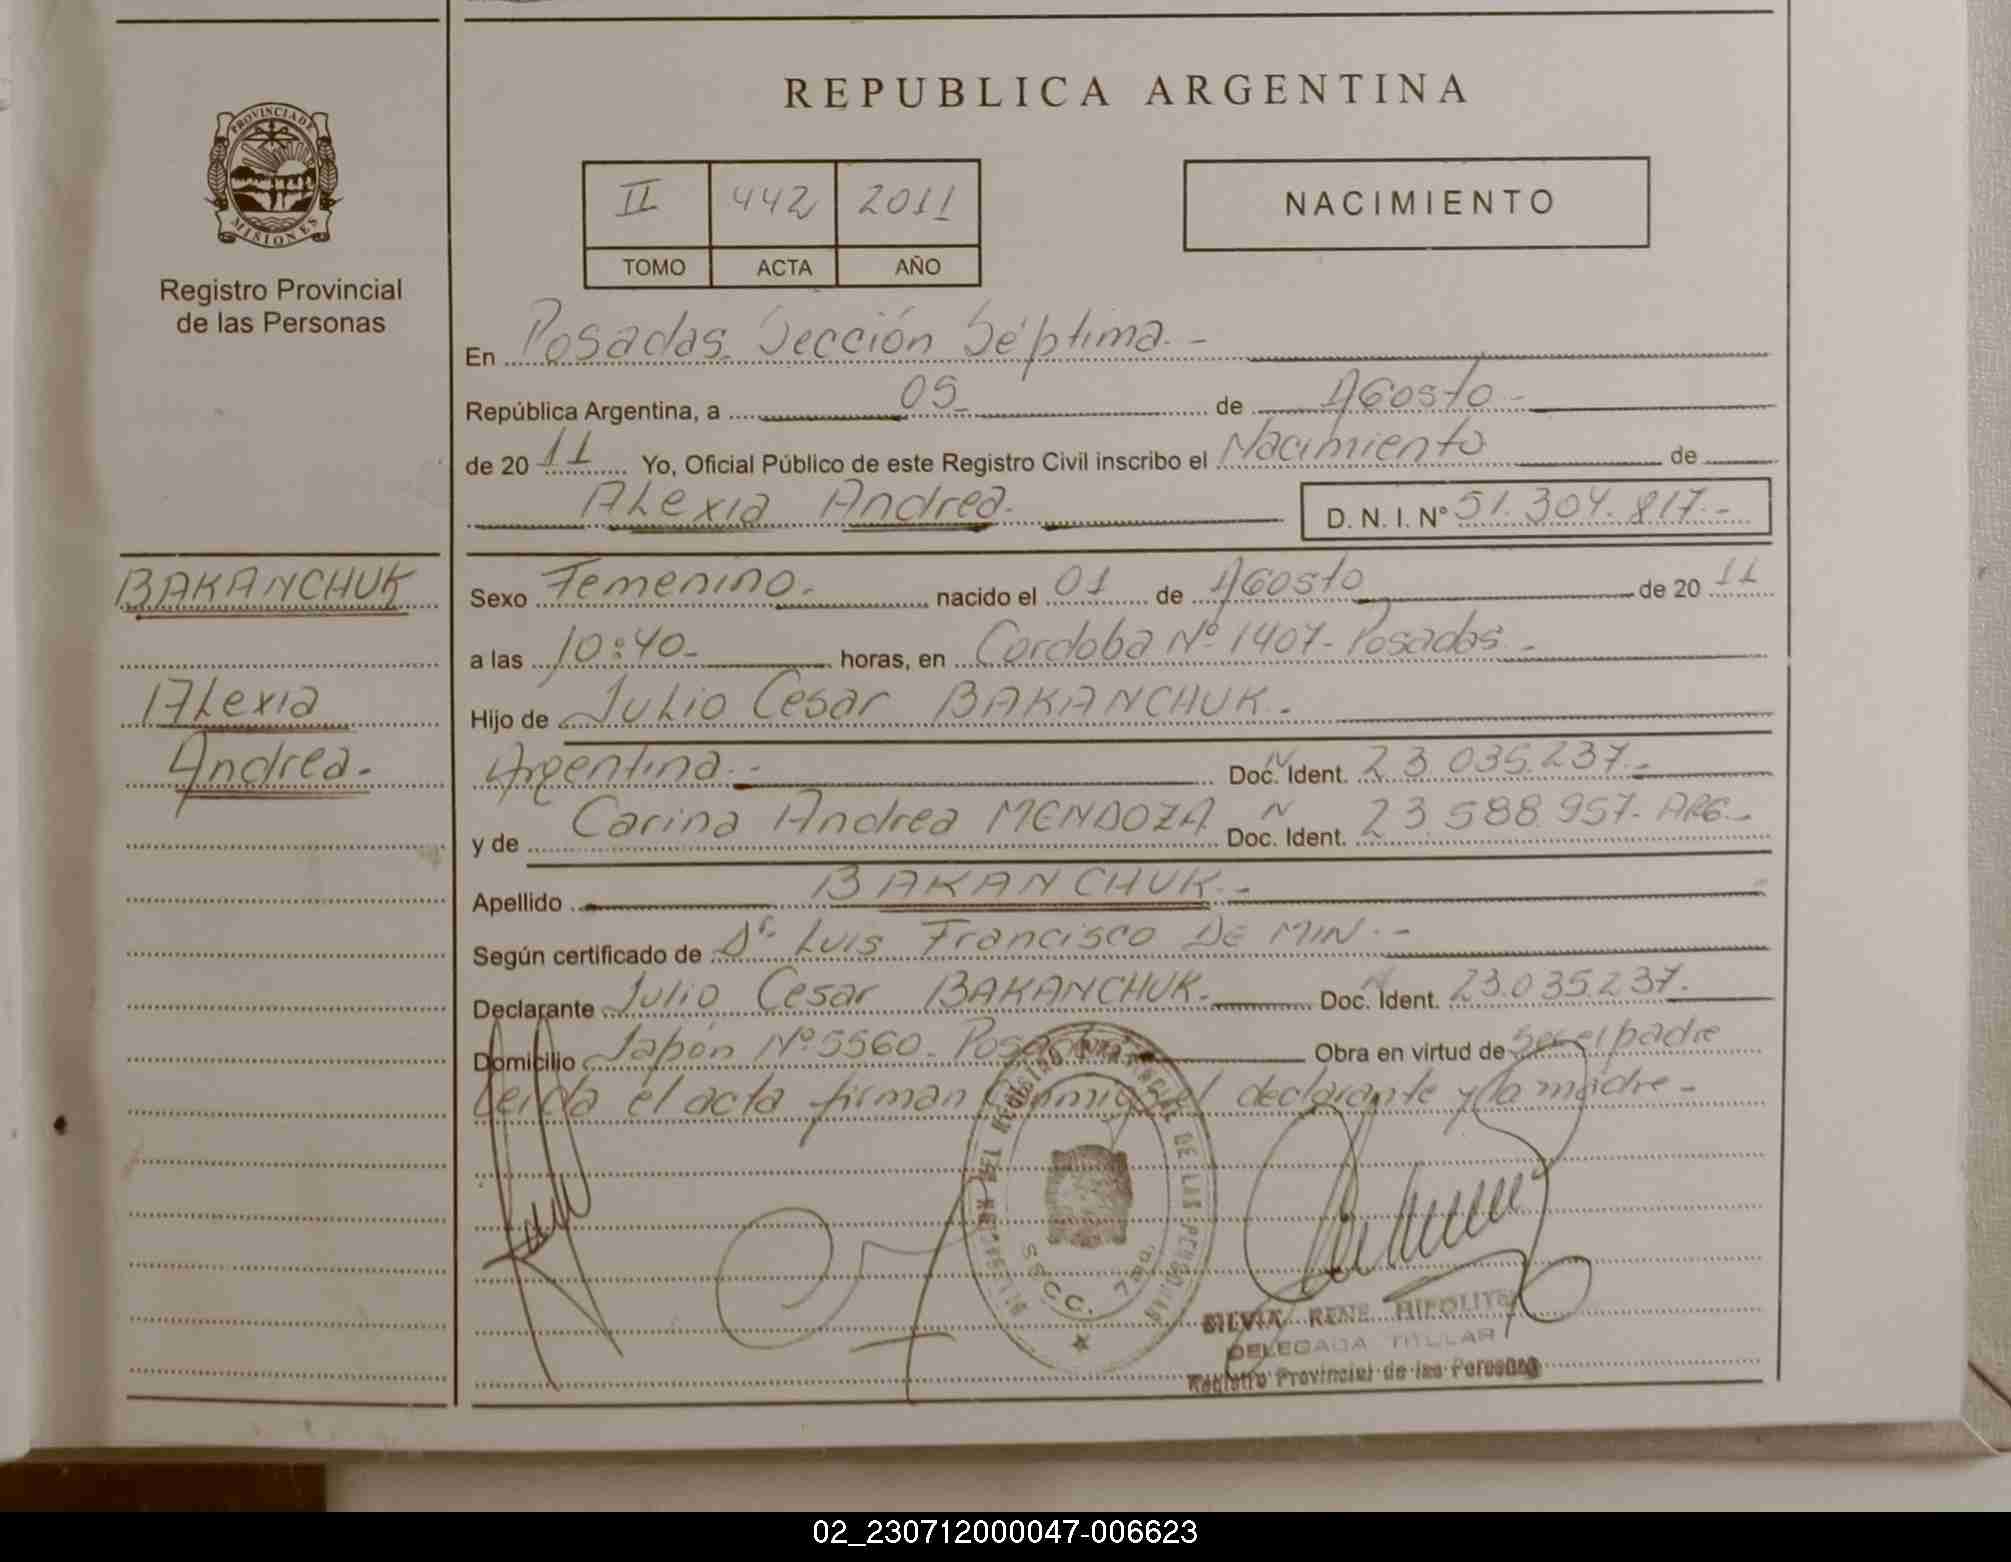 REPUBLICA ARGENTINA
PROVINCIA DE
MISIONES
Registro Provincial
de las Personas
II 442 2011
TOMO ACTA AÑO
NACIMIENTO
En Posadas. Sección Séptima.-
República Argentina, a 05 de Agosto-
de 20 11 Yo, Oficial Público de este Registro Civil inscribo el Nacimiento de
Alexia Andrea. D. N. I. N° 51.304.817.-
BAKANCHUK
Alexia
Andrea.-
Sexo Femenino. nacido el 01 de Agosto de 20 11
a las 10:40- horas, en Cordoba Nº 1407- Posadas.-
Hijo de Julio Cesar BAKANCHUK.
Argentina.- Doc. Ident. N 23.035.237.-
y de Carina Andrea MENDOZA Doc. Ident. N 23.588.957- ARG.-
Apellido BAKANCHUK.-
Según certificado de Dr. Luis Francisco DE MIN.-
Declarante Julio Cesar BAKANCHUK.- Doc. Ident. N 23.035.237.
Domicilio Japón Nº 5560. Posadas Obra en virtud de ser el padre
Leida el acta firman conmigo el declarante y la madre-
DELEGACION DEL REGISTRO PROVINCIAL DE LAS PERSONAS
SECC. 7ma.
SILVIA RENE HIPOLITO
DELEGADA TITULAR
Registro Provincial de las Personas
02_230712000047-006623